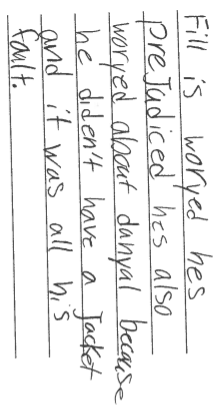 Fill is woryed hes
preJudiced hes also
woryed about dunyal because
he diden't have a Jacket
and it was all his
fault.